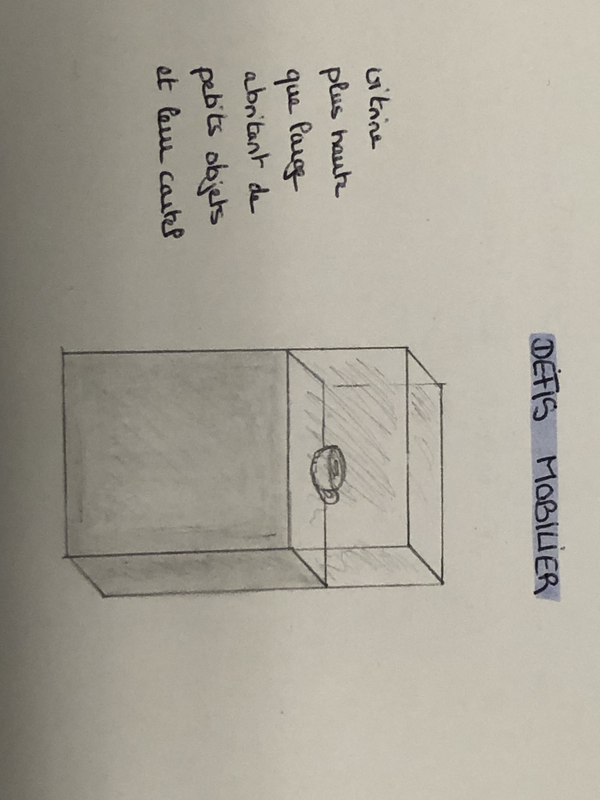 DÉFIS MOBILIER
vitrine
plus haute
que large
abritant de
petits objets
et leur cartel